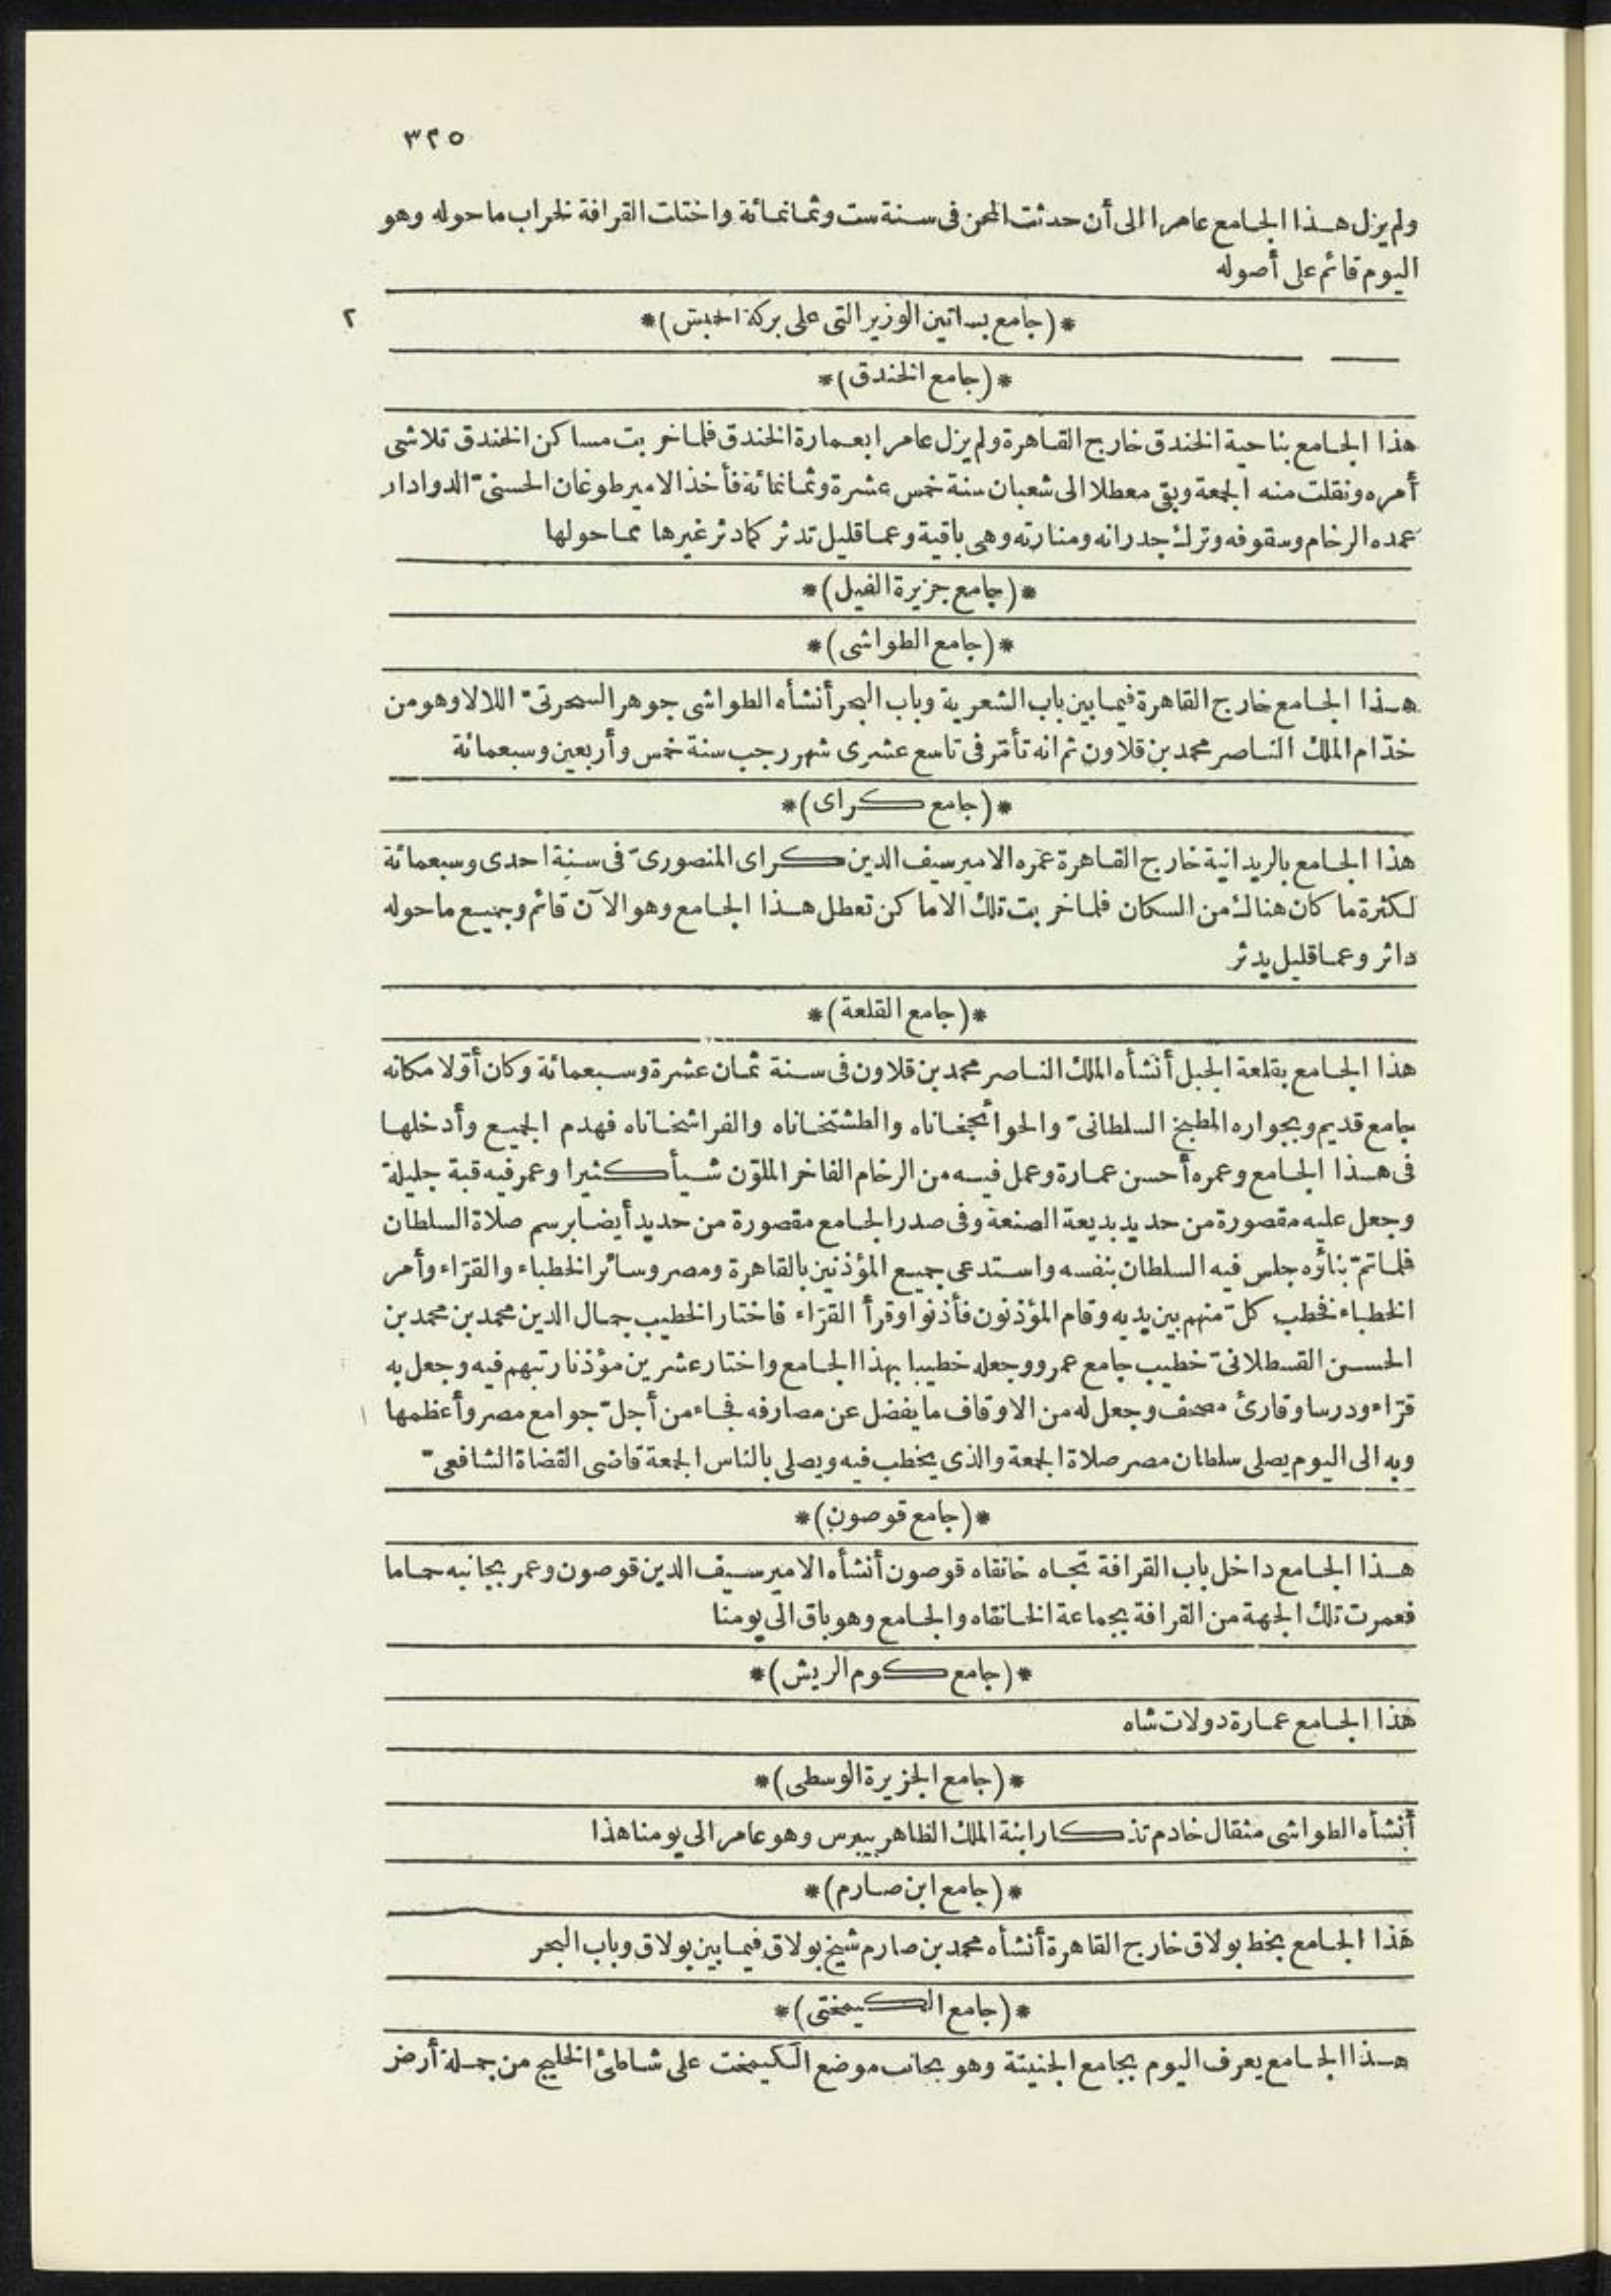 ٣٢٥
ولم يزل هذا الجامع عامرا الى أن حدثت المحن فى سنة ست وثمانمائة واختلت القرافة لخراب ماحوله وهو
اليوم قائم على أصوله
*(جامع بساتين الوزير التى على بركة الحبش)*
٢
*(جامع الخندق)*
هذا الجامع بناحية الخندق خارج القاهرة ولم يزل عامرا بعمارة الخندق فلما خربت مساكن الخندق تلاشى
أمره ونقلت منه الجمعة وبقى معطلا الى شعبان سنة خمس عشرة وثمانمائة فأخذ الامير طوغان الحسنىّ الدوادار
عمده الرخام وسقوفه وترك جدرانه ومنارته وهى باقية وعما قليل تدثر كما دثر غيرها مما حولها
*(جامع جزيرة الفيل)*
*(جامع الطواشى)*
هذا الجامع خارج القاهرة فيما بين باب الشعرية وباب البحر أنشأه الطواشى جوهر السحرتىّ اللالا وهو من
خدّام الملك الناصر محمد بن قلاون ثم انه تأمّر فى تاسع عشرى شهر رجب سنة خمس وأربعين وسبعمائة
*(جامع كراى)*
هذا الجامع بالريدانية خارج القاهرة عمّره الامير سيف الدين كراى المنصورىّ فى سنة احدى وسبعمائة
لكثرة ما كان هناك من السكان فلما خربت تلك الاماكن تعطل هذا الجامع وهو الآن قائم وجميع ماحوله
داثر وعما قليل يدثر
*(جامع القلعة)*
هذا الجامع بقلعة الجبل أنشأه الملك الناصر محمد بن قلاون فى سنة ثمان عشرة وسبعمائة وكان أوّلا مكانه
جامع قديم وبجواره المطبخ السلطانىّ والحوائجخاناه والطشتخاناه والفراشخاناه فهدم الجميع وأدخلها
فى هذا الجامع وعمره أحسن عمارة وعمل فيه من الرخام الفاخر الملوّن شيأ كثيرا وعمر فيه قبة جليلة
وجعل عليه مقصورة من حديد بديعة الصنعة وفى صدر الجامع مقصورة من حديد أيضا برسم صلاة السلطان
فلما تمّ بناؤه جلس فيه السلطان بنفسه واستدعى جميع المؤذنين بالقاهرة ومصر وسائر الخطباء والقرّاء وأمر
الخطباء فخطب كلّ منهم بين يديه وقام المؤذنون فأذنوا وقرأ القرّاء فاختار الخطيب جمال الدين محمد بن محمد بن
الحسن القسطلانىّ خطيب جامع عمرو وجعله خطيبا بهذا الجامع واختار عشرين مؤذنا رتبهم فيه وجعل به
قرّاء ودرسا وقارئ مصحف وجعل له من الاوقاف ما يفضل عن مصارفه فجاء من أجلّ جوامع مصر وأعظمها
وبه الى اليوم يصلى سلطان مصر صلاة الجمعة والذى يخطب فيه ويصلى بالناس الجمعة قاضى القضاة الشافعىّ
*(جامع قوصون)*
هذا الجامع داخل باب القرافة تجاه خانقاه قوصون أنشأه الامير سيف الدين قوصون وعمر بجانبه حماما
فعمرت تلك الجهة من القرافة بجماعة الخانقاه والجامع وهو باق الى يومنا
*(جامع كوم الريش)*
هذا الجامع عمارة دولات شاه
*(جامع الجزيرة الوسطى)*
أنشأه الطواشى مثقال خادم تذكار ابنة الملك الظاهر بيبرس وهو عامر الى يومنا هذا
*(جامع ابن صارم)*
هذا الجامع بخط بولاق خارج القاهرة أنشأه محمد بن صارم شيخ بولاق فيما بين بولاق وباب البحر
*(جامع الكيمختى)*
هذا الجامع يعرف اليوم بجامع الجنينة وهو بجانب موضع الكيمخت على شاطئ الخليج من جملة أرض